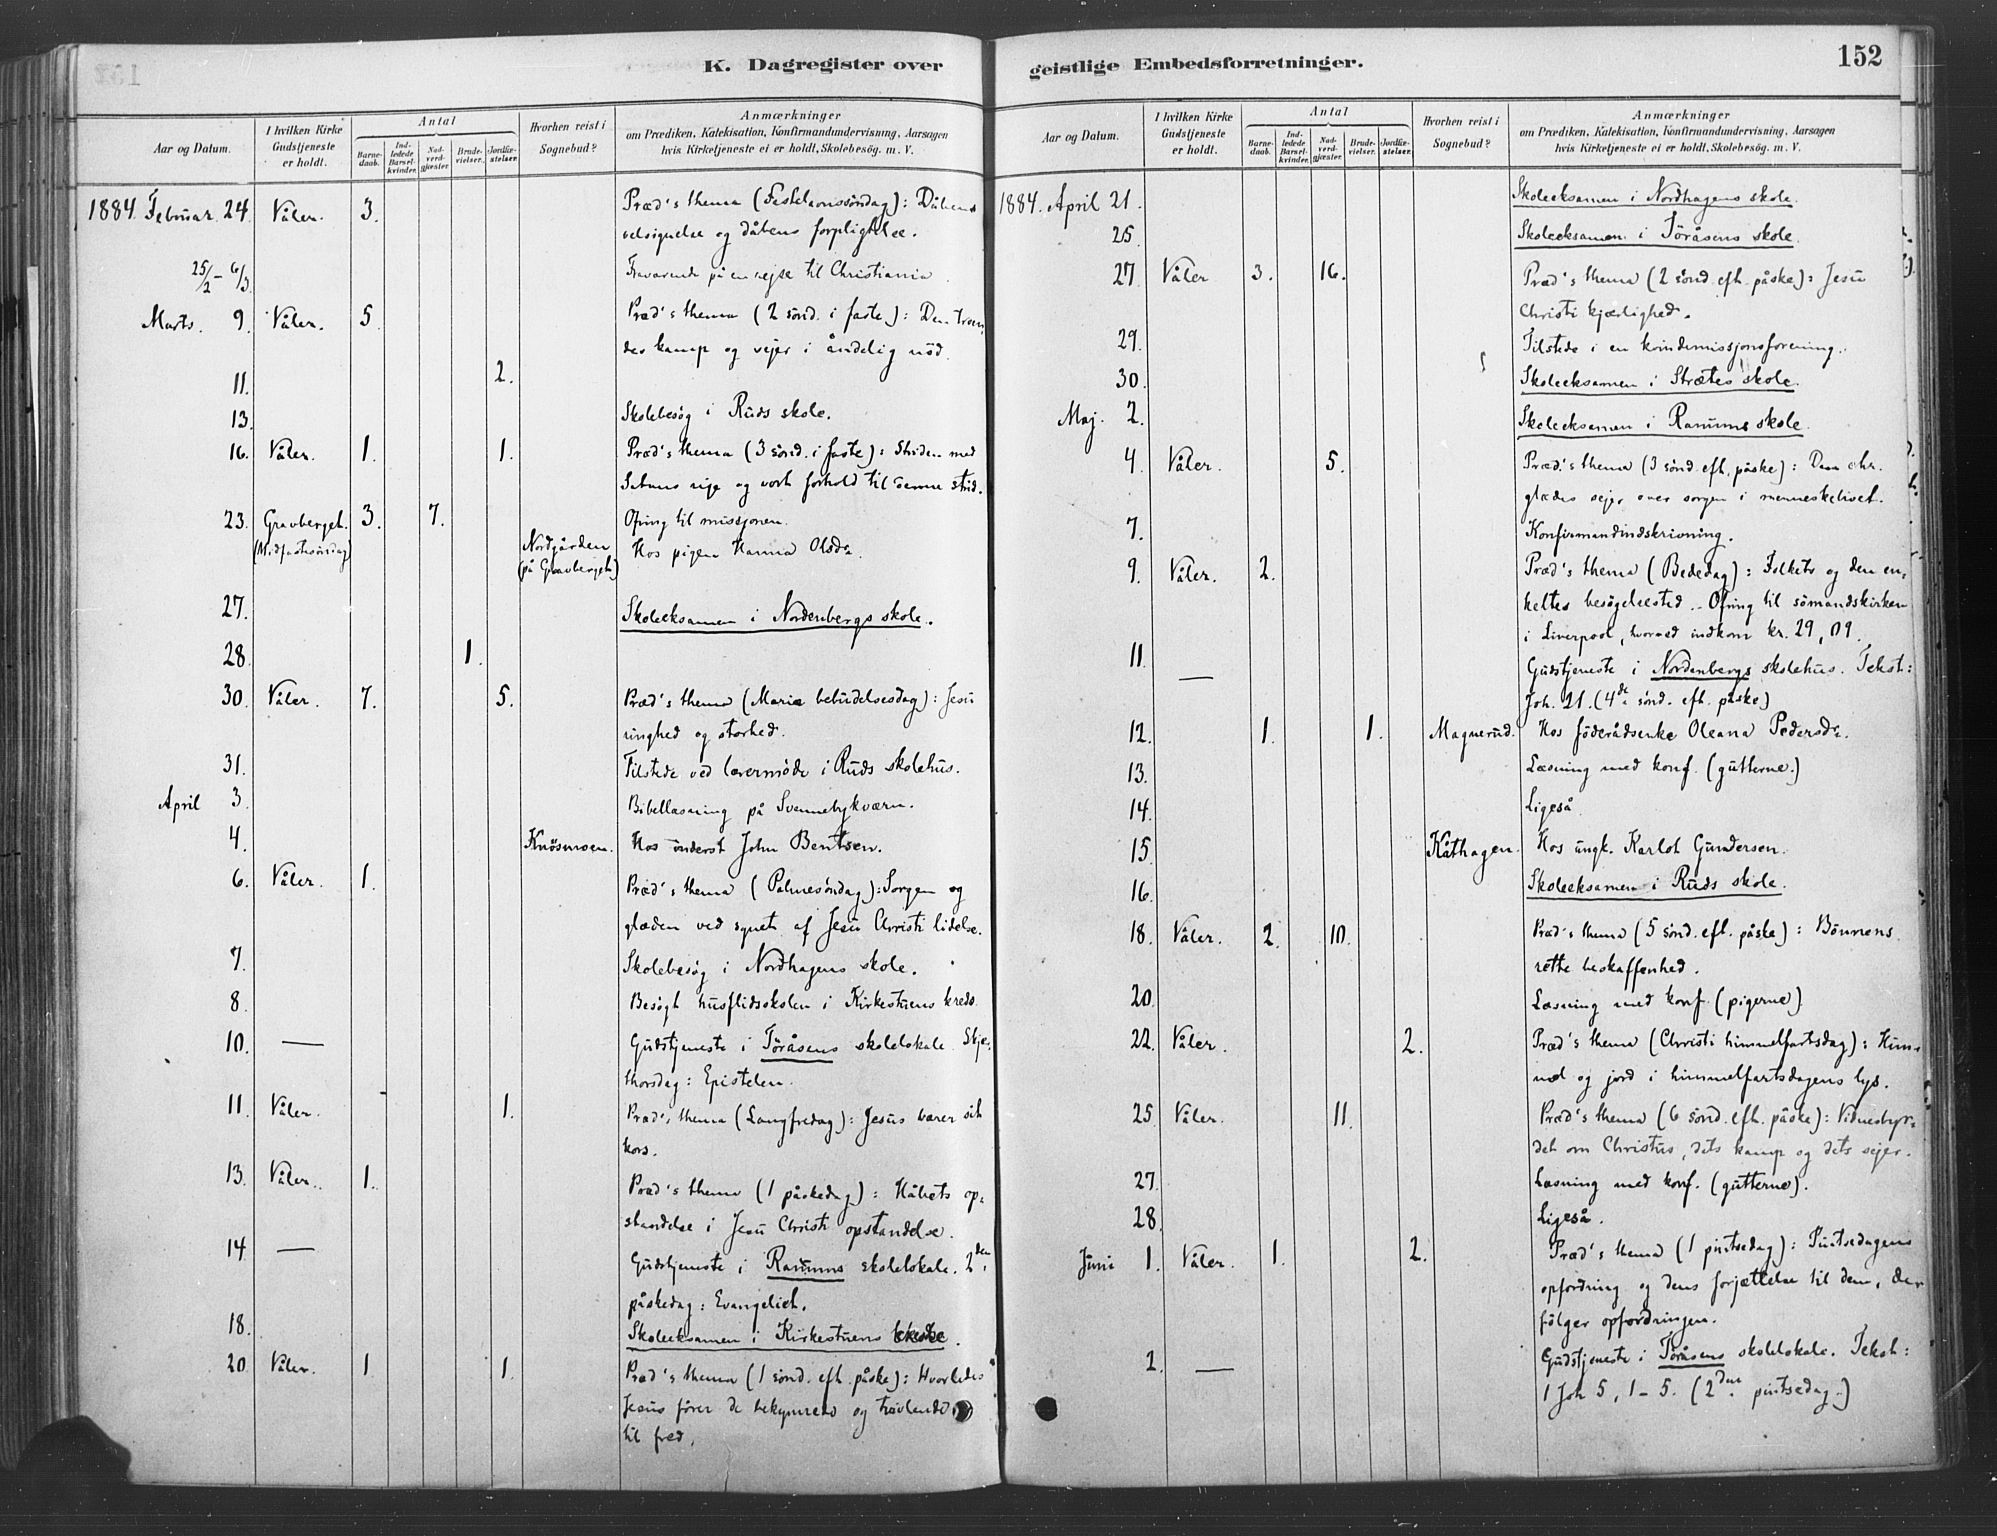 K. Dagregister over
Aar og Datum.
I hvilken Kirke Gudstjeneste er holdt.
Antal
Barnedaab.
Indledede Barselkvinder.
Nadverdgjæster.
Brudevielser.
Jordfæstelser.
Hvorhen reist i Sognebud?
Anmærkninger
om Prædiken, Katekisation, Konfirmandundervisning, Aarsagen
hvis Kirketjeneste ei er holdt, Skolebesøg. m. V.
1884. Februar 24. Våler. 3. Præd's thema (Fastelavnssöndag): Dåbens
velsignelse og dåbens forpligtelse.
25/2 – 6/3. Fraværende på en rejse til Christiania
Marts. 9. Våler. 5. Præd's thema (2 sönd. i faste): Den troen-
des kamp og sejer i åndelig nöd.
11. 2.
13. Skolebesög i Ruds skole.
16. Våler. 1. 1. Præd's thema (3 sönd. i faste): Striden med
Satans rige og vort forhold til denne strid.
23. Gravberget. 3. 7. Ofring til missjonen.
(Midfastesöndag) Nordgården Hos pigen Hanna Olsdr.
(på Gravberget)
27. Skoleeksamen i Nordenbergs skole.
28. 1.
30. Våler. 7. 5. Præd's thema (Mariæ bebudelsesdag): Jesu
ringhed og storhed.
31. Tilstede ved lærermöde i Ruds skolehus.
April 3. Bibellæsning på Svennebykværn.
4. Knösmoen. Hos inderst John Bentsen.
6. Våler. 1. Præd's thema (Palmesöndag): Sorgen og
glæden ved synet af Jesu Christi lidelse.
7. Skolebesög i Nordhagens skole.
8. Besögt husflidsskolen i Kirkestuens kreds.
10. — Gudstjeneste i Töråsens skolelokale. Skjær-
thorsdag: Epistelen.
11. Våler. 1. Præd's thema (Langfredag): Jesus bærer sit
kors.
13. Våler. 1. Præd's thema (1 påskedag): Håbets op-
standelse i Jesu Christi opstandelse.
14 — Gudstjeneste i Ranums skolelokale. 2den
påskedag: Evangeliet.
18. Skoleeksamen i Kirkestuens kreds.
20 Våler. 1 1. Præd's thema (1 sönd. eft. påske): Hvorledes
Jesus förer de bekymrede og tvivlende
til fred.
geistlige Embedsforretninger.
152
Aar og Datum.
I hvilken Kirke Gudstjeneste er holdt.
Antal
Barnedaab.
Indledede Barselkvinder.
Nadverdgjæster.
Brudevielser.
Jordfæstelser.
Hvorhen reist i Sognebud?
Anmærkninger
om Prædiken, Katekisation, Konfirmandundervisning, Aarsagen
hvis Kirketjeneste ei er holdt, Skolebesøg. m. V.
1884. April 21. Skoleeksamen i Nordhagens skole.
25. Skoleeksamen i Töråsens skole.
27 Våler 3. 16. Præd's thema (2 sönd. eft. påske): Jesu
Christi kjærlighed.
29. Tilstede i en kvindemissjonsforening.
30. Skoleeksamen i Strætes skole.
Maj. 2. Skoleeksamen i Ranums skole.
4. Våler. 5. Præd.'s thema (3 sönd. eft. påske): Den chr.
glædes sejer over sorgen i menneskelivet.
7. Konfirmandindskrivning.
9. Våler. 2. Præd's thema (Bededag): Folkets og den en-
keltes besögelsestid. – Ofring til sömandskirken
i Liverpool, hvorved indkom kr. 29,09.
11. — Gudstjeneste i Nordenbergs skolehus. Tekst:
Joh. 21. (4de sönd. eft. påske)
12. 1. 1. Magnerud. Hos föderådsenke Oleana Pedersdr.
13. Læsning med konf. (gutterne.)
14. Ligeså
15. Kåthagen. Hos ungk. Karlot Gundersen.
16. Skoleeksamen i Ruds skole.
18. Våler. 2. 10. Præd's thema (5 sönd. eft. påske): Bönnens
rette beskaffenhed.
20. Læsning med konf. (pigerne)
22. Våler. 2. Præd's thema (Christi himmelfartsdag): Him-
mel og jord i himmelfartsdagens lys.
25 Våler. 11. Præd's thema (6 sönd. eft. påske): Vidnesbyr-
det om Christus, dets kamp og dets sejer.
27. Læsning med konf. (gutterne).
28. Ligeså.
Juni 1. Våler. 1. 2. Præd's thema (1 pintsedag): Pintsedagens
opfordring og dens forjættelse til dem, der
fölger opfordringen.
2. — Gudstjeneste i Töråsens skolelokale. Tekst:
1 Joh 5, 1–5. (2den pintsedag.)